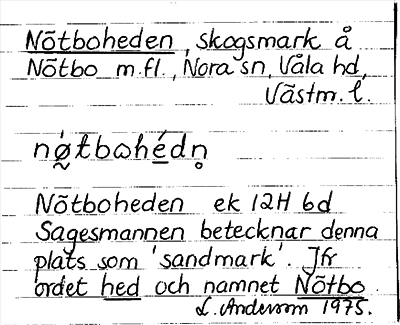 Nötboheden, skogsmark å
Nötbo m.fl., Nora sn, Våla hd,
Västm. l.
nǿ̰tbωhé̲dn̥
Nötboheden ek 12H 6d
Sagesmannen betecknar denna
plats som 'sandmark'. Jfr
ordet hed och namnet Nötbo.
L. Anderson 1975.